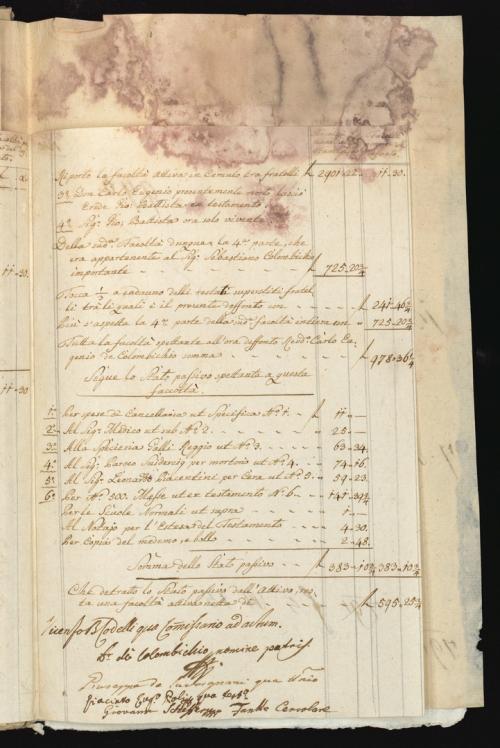 Riporto la facoltà attiva in Comulo tra fratelli f 2901-22- 11-30.
3º Don Carlo Eugenio presentemente morto lasciò
Erede Gio: Battista ex testamento
4º Sigr. Gio: Battista ora solo vivente
Della sudª. Facoltà dunque la 4ª. parte, che
era appartenente al Sigr. Sebastiano Colombichio
importante f 725-20 2/4
Tocca 1/3 a cadauno delli restati superstiti fratel
li tra li quali è il presente deffonto con f 241-46 3/4
Cosi s'aspetta la 4ª. parte della sudª. facoltà intiera con 725-20 2/4
Tutta la facoltà spettante all'ora deffonto Redo. Carlo Eu-
genio de Colombichio somma f 978-36 1/4
Segue lo Stato passivo spettante a questa
facoltà
1º Per spese di Cancellaria ut Specifica Nº. 1. f 11 -
2º Al Sigr. Medico ut sub Nº. 2. 25 -
3º Alla Specieria Galli Reggio ut Nº. 3. 63-34.
4º Al Sigr. Paroco per mortorio ut Nº. 4. 74-16.
5º Al Sigr. Leonardo Piacentini per Cera ut Nº. 5. 59-23.
6º Per Nº. 300. Messe ut ex testamento Nº. 6. 141-39 2/4
Per le Scuole Normali ut supra 1 -
Al Notajo per l'Estesa del Testamento 4-30.
Per Copia del medemo e bollo 2-48.
Somma dello Stato passivo f 383-10 2/4 383-10 2/4
Che detratto lo Stato passivo dall'Attivo, res-
ta una facoltà attiva netta di f 595-25 3/4
Vicenzo Bsodelli qua Comissario ad actum.
de Colombichio nomine patris
Giuseppe de qua
Giacinto qua
Giovanni Cancolare